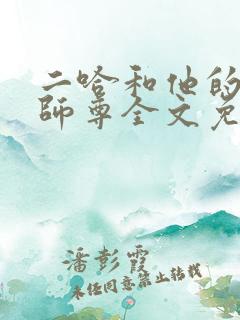 二哈和他的
师尊全文免
潘彭霞
未经同意禁止转载